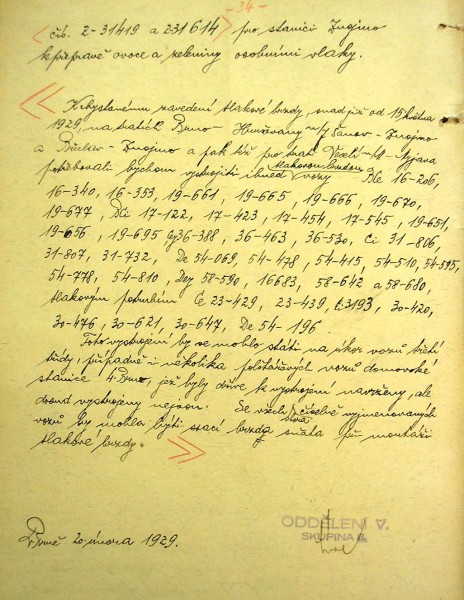 -34-
čís. 2-31419 a 2-31614 pro stanici Znojmo
k přepravě ovoce a zeleniny osobními vlaky.
K obyslanému zavedení tlakové brzdy, snad již od 15. května
1929, na tratích Brno - Hrušovany n/J Šanov - Znojmo
a Břeclav - Znojmo a pak též pro trať Veselí - Myjava
potřebovali bychom vystrojiti ihned tlakovou brzdou vozy 16-206,
16-340, 16-353, 19-661, 19-665, 19-666, 19-670,
19-677, 17-122, 17-423, 17-454, 17-545, 19-651,
19-656, 19-695 36-388, 36-463, 36-530, Ci 31-806,
31-807, 31-732, De 54-069, 54-478, 54-415, 54-510, 54-595,
54-778, 54-810, 58-590, 16683, 58-642 a 58-680,
tlakovým potrubím Ce 23-429, 23-439, 30-420,
30-476, 30-621, 30-647, De 54-196.
Toto vystrojení by se mohlo státi na úkor vozů třetí
třídy, případně i několika poštářových vozů domovské
stanice Brno, jež byly dříve k vystrojení navrženy, ale
dosud vystrojeny nejsou. Se všech číselně vyjmenovaných
vozů by mohla býti ssací brzda sňata při montáži
tlakové brzdy.
V Brně 20. února 1929.
ODDĚLENÍ V.
SKUPINA 8.